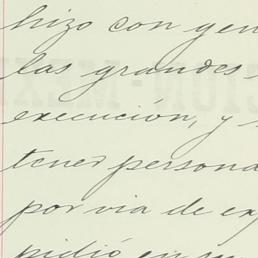 hizo con gen
las grandes
execución, y
tener persona
por via de ex
pidió en su